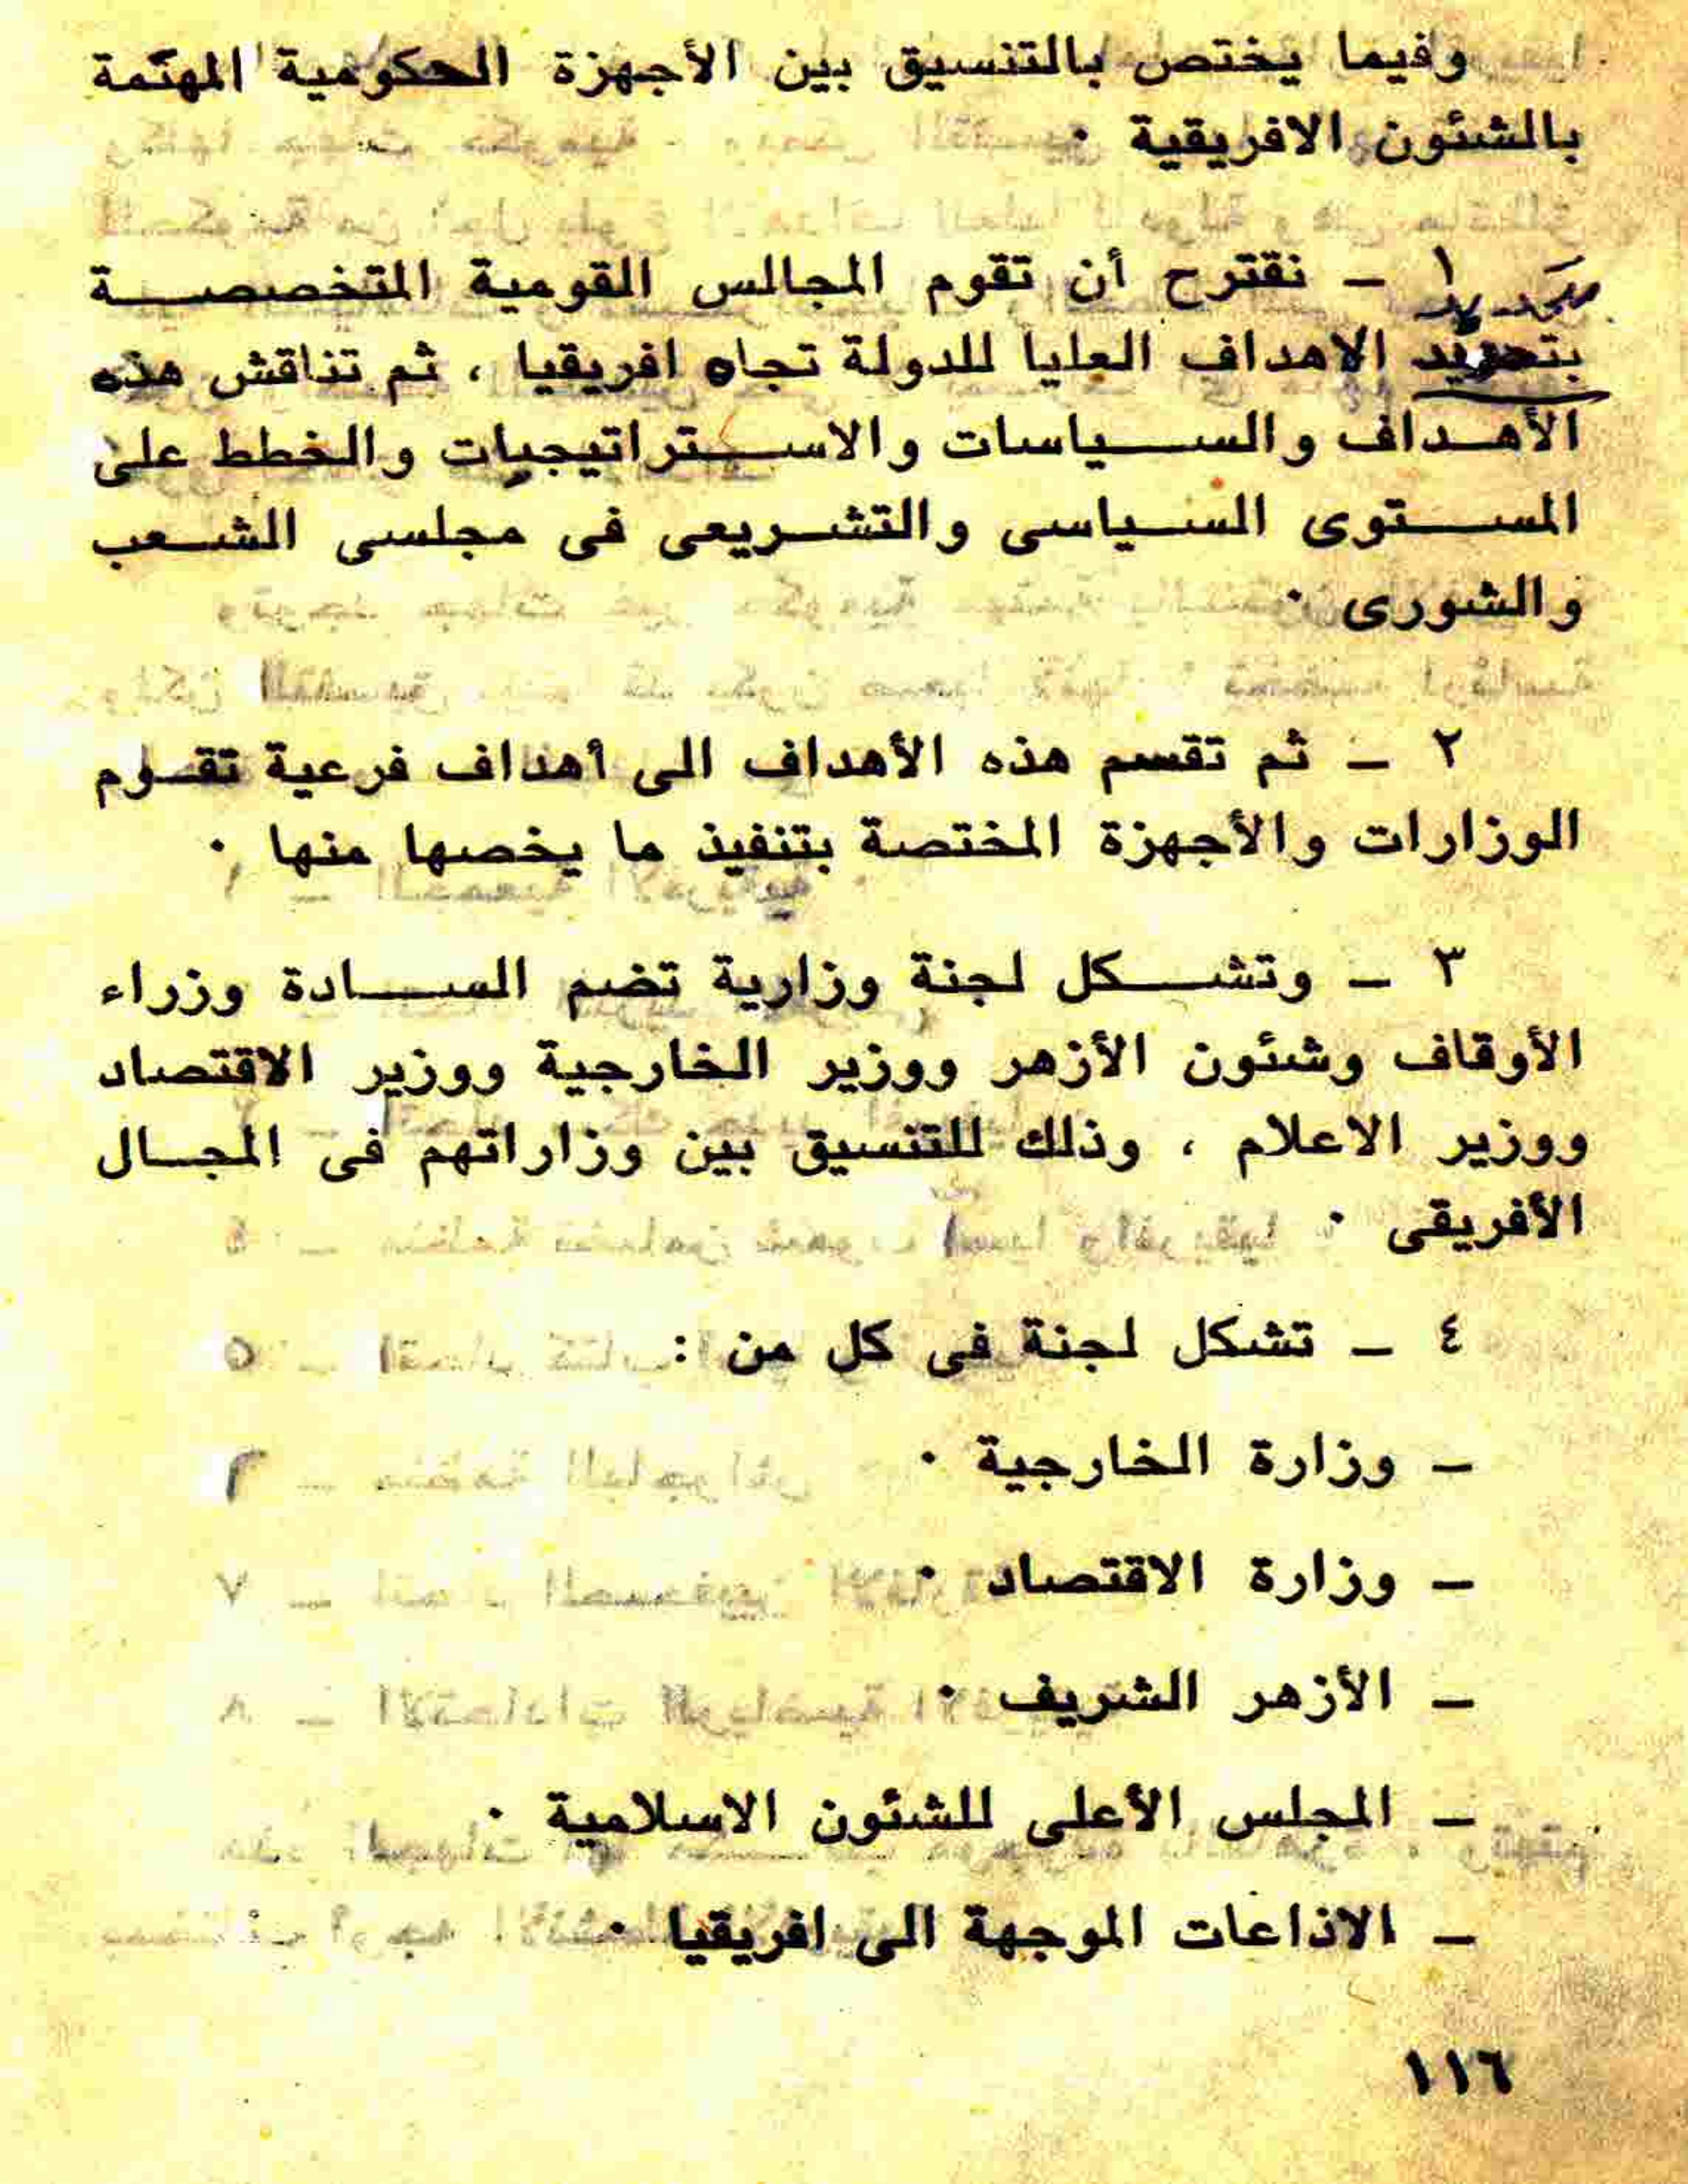 وفيما يختص بالتنسيق بين الأجهزة الحكومية المهتمة
بالشئون الافريقية .
١ ـ نقترح أن تقوم المجالس القومية المتخصصة
بتحديد الاهداف العليا للدولة تجاه افريقيا ، ثم تناقش هذه
الأهداف والسياسات والاستراتيجيات والخطط على
المستوى السياسى والتشريعى فى مجلسى الشعب
والشورى .
٢ ـ ثم تقسم هذه الأهداف الى أهداف فرعية تقوم
الوزارات والأجهزة المختصة بتنفيذ ما يخصها منها .
٣ ـ وتشكل لجنة وزارية تضم السادة وزراء
الأوقاف وشئون الأزهر ووزير الخارجية ووزير الاقتصاد
ووزير الاعلام ، وذلك للتنسيق بين وزاراتهم فى المجال
الأفريقى .
٤ ـ تشكل لجنة فى كل من :
ـ وزارة الخارجية .
ـ وزارة الاقتصاد .
ـ الأزهر الشريف .
ـ المجلس الأعلى للشئون الاسلامية .
ـ الاذاعات الموجهة الى افريقيا .
١١٦